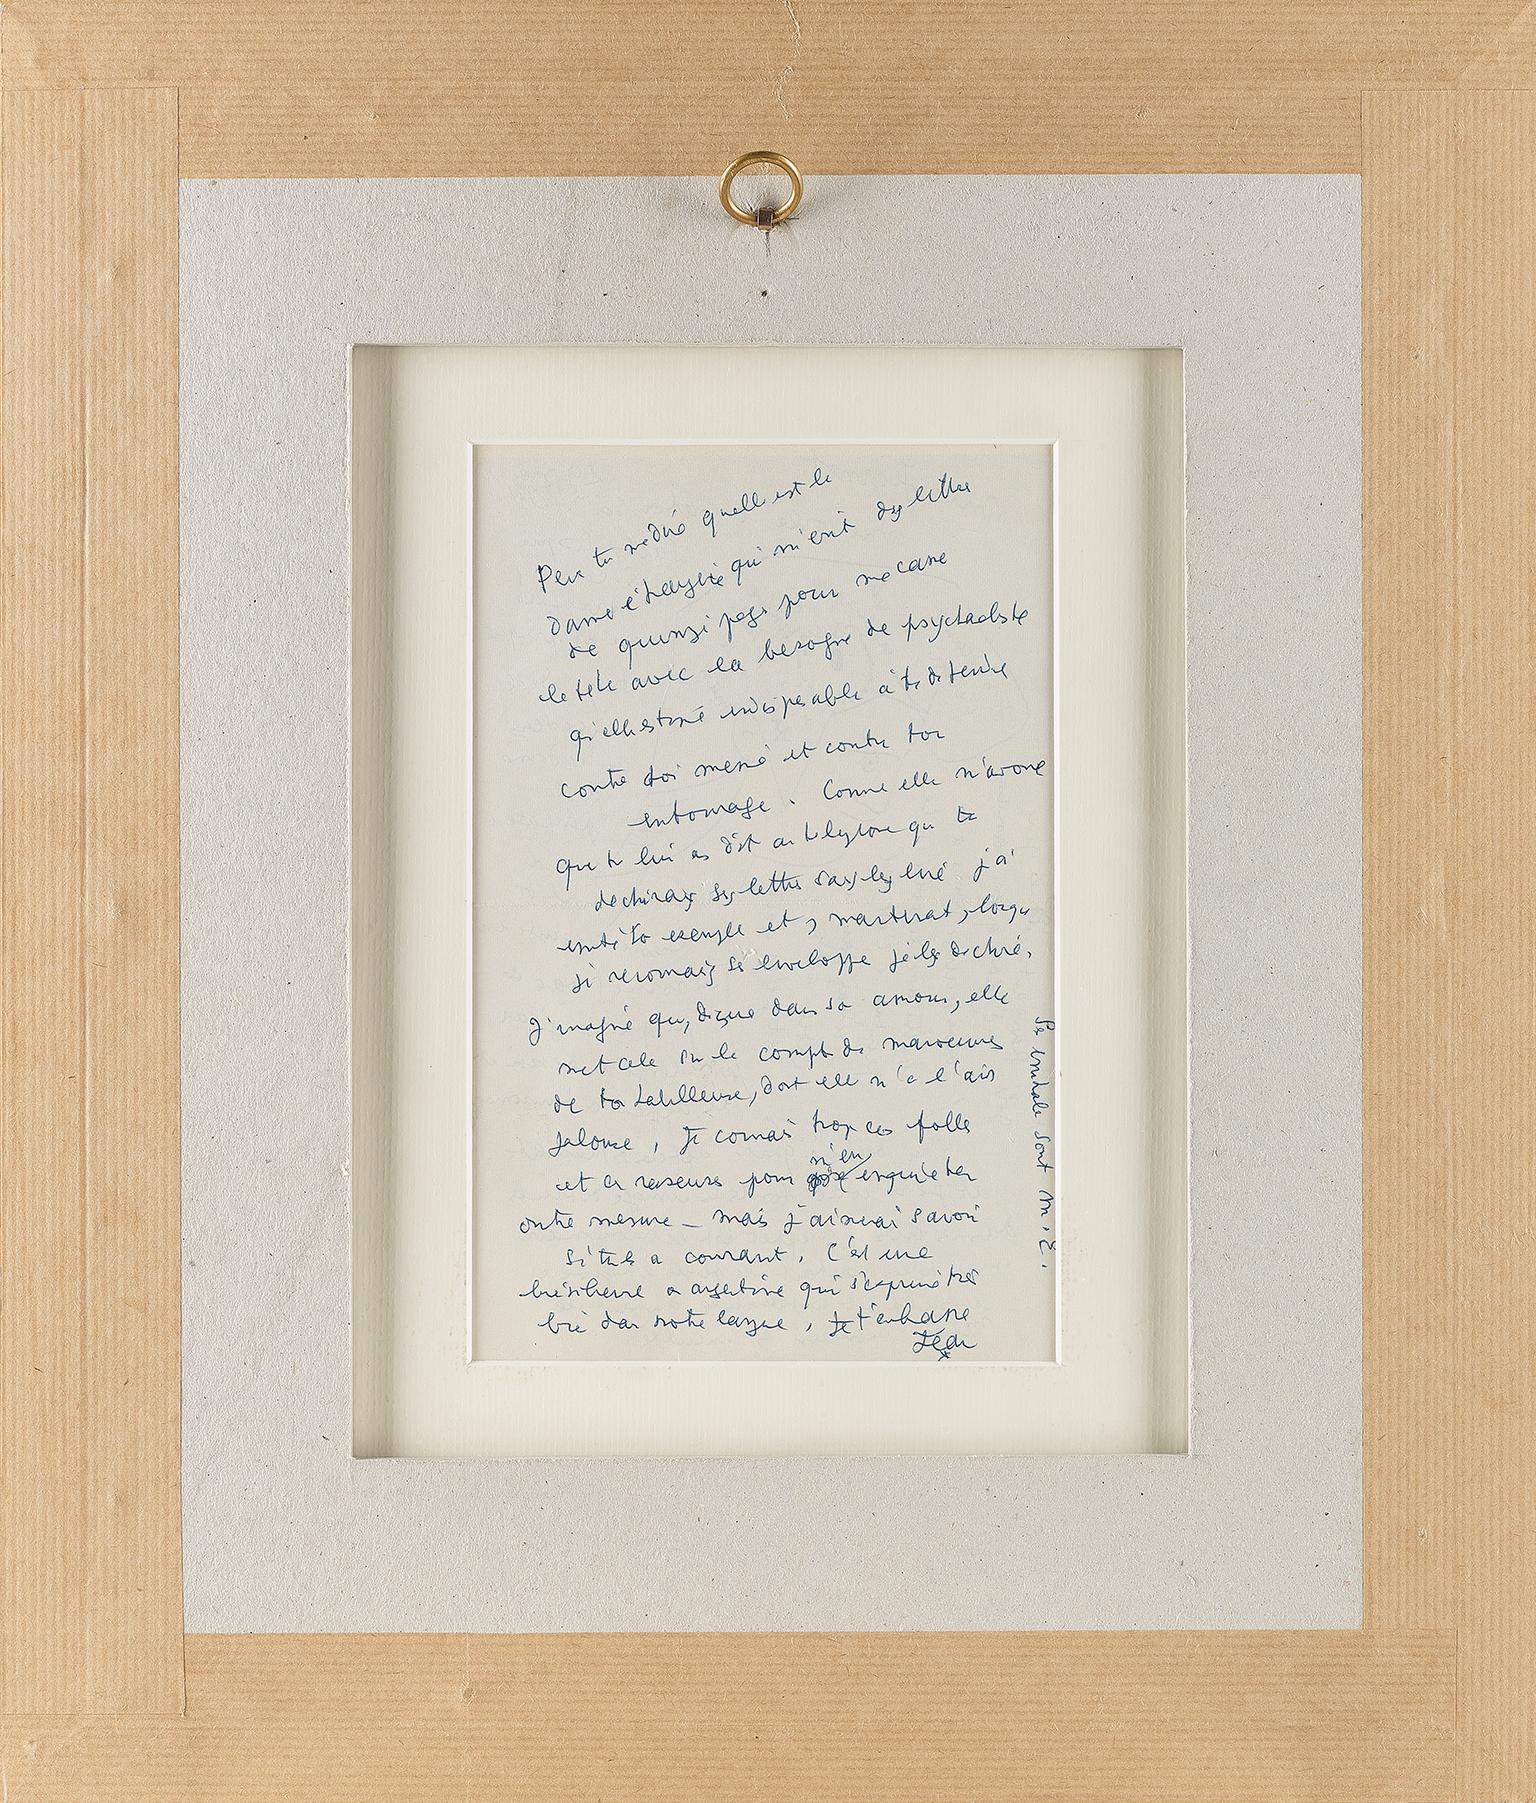 Peux tu me dire quelle est la
dame étrangère qui m'écrit des lettres
de quinze pages pour me casser
la tête avec la besogne de psychanaliste
qu'elle estime indispensable à te défendre
contre toi même et contre ton
entourage. Comme elle m'avoue
que tu lui as dit au téléphone que tu
déchirais ses lettres sans les lire j'ai
imité ton exemple et, maintenant, lorsque
je reconnais ses enveloppes je les déchire.
J'imagine que, digne dans son amour, elle
met cela sur le compte de manoeuvres
de ton habilleuse, dont elle n'a l'air
jalouse, je connais trop ces folles
et ces raseuses pour m'en inquiéter
outre mesure - mais j'aimerai savoir
si tu es au courant. C'est une
brésilienne ou argentine qui s'exprime très
bien dans notre langue, je t'embrasse
Jean
*
Ses initiales sont M. E.